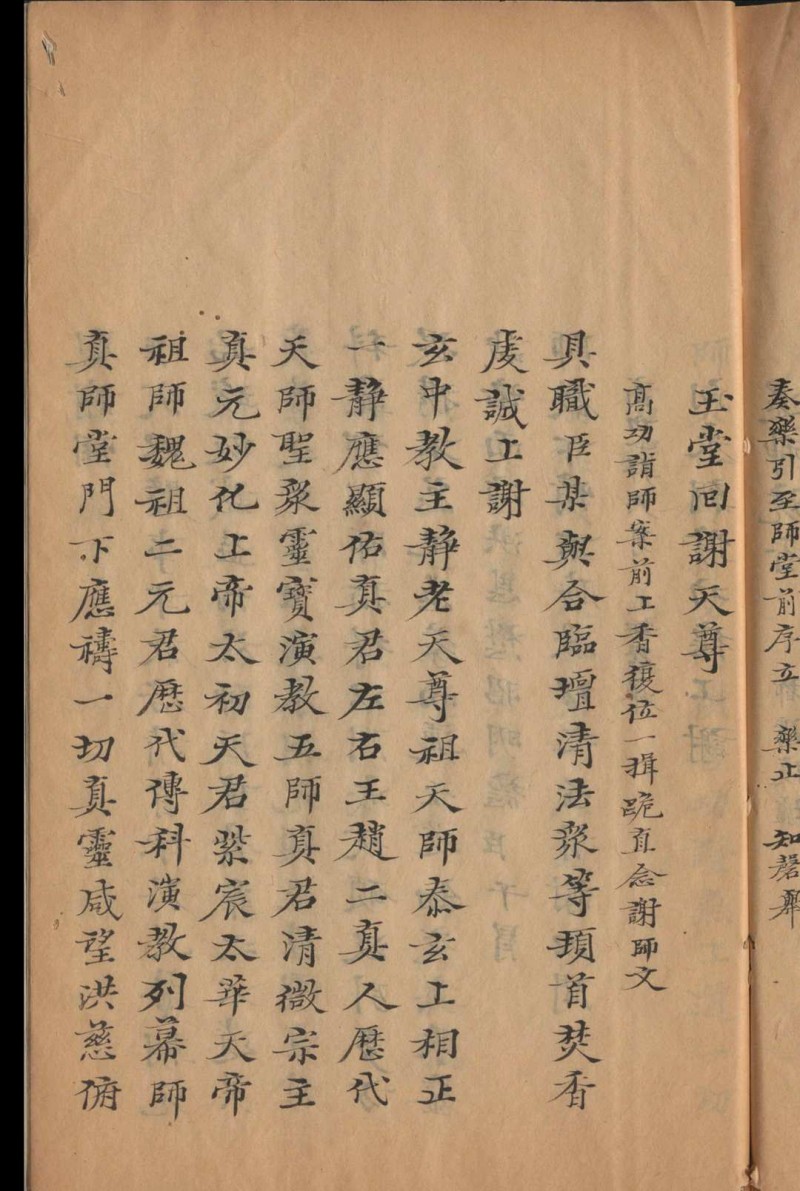 奏樂引至師堂前序立　樂止　知磬舉
玉堂回謝天尊
高功詣師案前上香復位一揖跪直念謝師文
具職臣某與合臨壇清法眾等頊首焚香
虔誠上謝
玄中教主靜老天尊祖天師泰玄上相正
一靜應顯佑真君左右王趙二真人歷代
天師聖眾靈寶演教五師真君清微宗主
真元妙化上帝太初天君紫宸太華天帝
祖師魏祖二元君歷代傳科演教列幕師
真師堂門下應禱一切真靈咸望洪慈俯